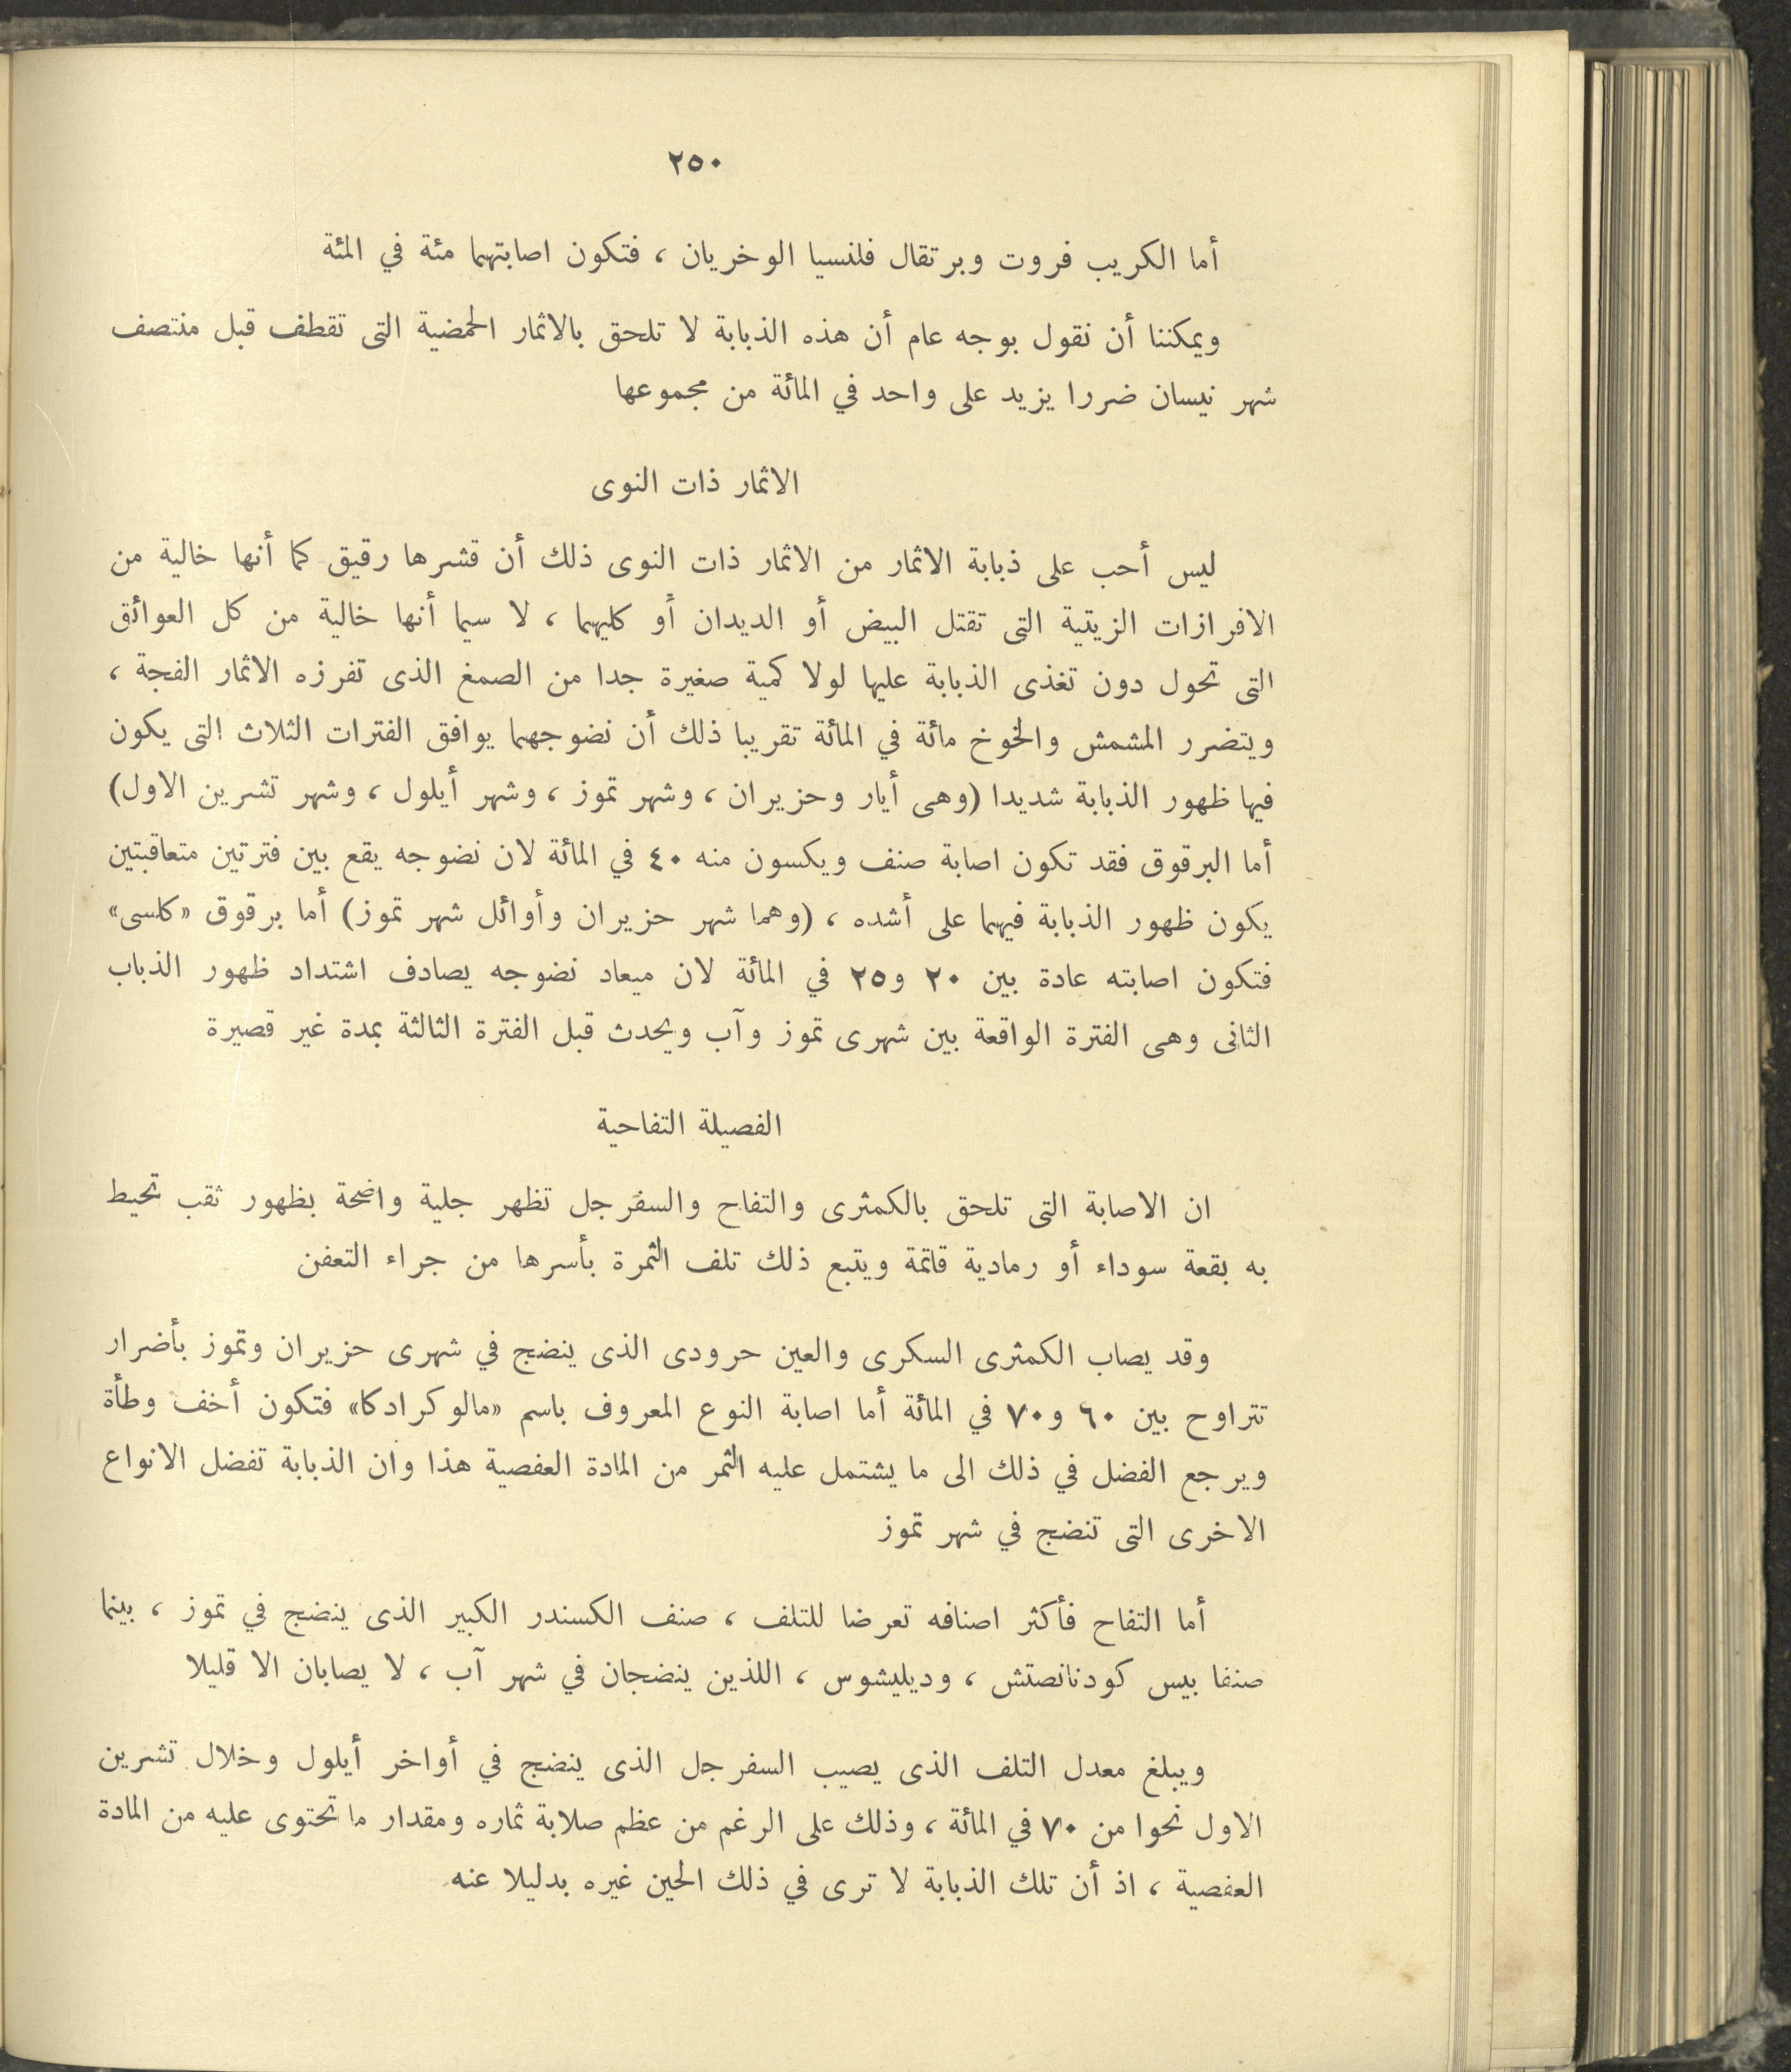 ٢٥٠
أما الكريب فروت وبرتقال فلنسيا الوخريان ، فتكون اصابتهما مئة في المئة
ويمكننا أن نقول بوجه عام أن هذه الذبابة لا تلحق بالاثمار الحمضية التى تقطف قبل منتصف
شهر نيسان ضررا يزيد على واحد في المائة من مجموعها
الاثمار ذات النوى
ليس أحب على ذبابة الاثمار من الاثمار ذات النوى ذلك أن قشرها رقيق كما أنها خالية من
الافرازات الزيتية التى تقتل البيض أو الديدان أو كليهما ، لا سيما أنها خالية من كل العوائق
التى تحول دون تغذى الذبابة عليها لولا كمية صغيرة جدا من الصمغ الذى تفرزه الاثمار الفجة ،
ويتضرر المشمش والخوخ مائة في المائة تقريبا ذلك أن نضوجهما يوافق الفترات الثلاث التى يكون
فيها ظهور الذبابة شديدا (وهى أيار وحزيران ، وشهر تموز ، وشهر أيلول ، وشهر تشرين الاول)
أما البرقوق فقد تكون اصابة صنف ويكسون منه ٤٠ في المائة لان نضوجه يقع بين فترتين متعاقبتين
يكون ظهور الذبابة فيهما على أشده ، (وهما شهر حزيران وأوائل شهر تموز) أما برقوق «كلسى»
فتكون اصابته عادة بين ٢٠ و٢٥ في المائة لان ميعاد نضوجه يصادف اشتداد ظهور الذباب
الثانى وهى الفترة الواقعة بين شهرى تموز وآب ويحدث قبل الفترة الثالثة بمدة غير قصيرة
الفصيلة التفاحية
ان الاصابة التى تلحق بالكمثرى والتفاح والسفرجل تظهر جلية واضحة بظهور ثقب تحيط
به بقعة سوداء أو رمادية قاتمة ويتبع ذلك تلف الثمرة بأسرها من جراء التعفن
وقد يصاب الكمثرى السكرى والعين حرودى الذى ينضج في شهرى حزيران وتموز بأضرار
تتراوح بين ٦٠ و٧٠ في المائة أما اصابة النوع المعروف باسم «مالوكرادكا» فتكون أخف وطأة
ويرجع الفضل في ذلك الى ما يشتمل عليه الثمر من المادة العفصية هذا وان الذبابة تفضل الانواع
الاخرى التى تنضج في شهر تموز
أما التفاح فأكثر اصنافه تعرضا للتلف ، صنف الكسندر الكبير الذى ينضج في تموز ، بينما
صنفا بيس كودنانصتش ، وديليشوس ، اللذين ينضجان في شهر آب ، لا يصابان الا قليلا
ويبلغ معدل التلف الذى يصيب السفرجل الذى ينضج في أواخر أيلول وخلال تشرين
الاول نحوا من ٧٠ في المائة ، وذلك على الرغم من عظم صلابة ثماره ومقدار ما تحتوى عليه من المادة
العفصية ، اذ أن تلك الذبابة لا ترى في ذلك الحين غيره بدليلا عنه